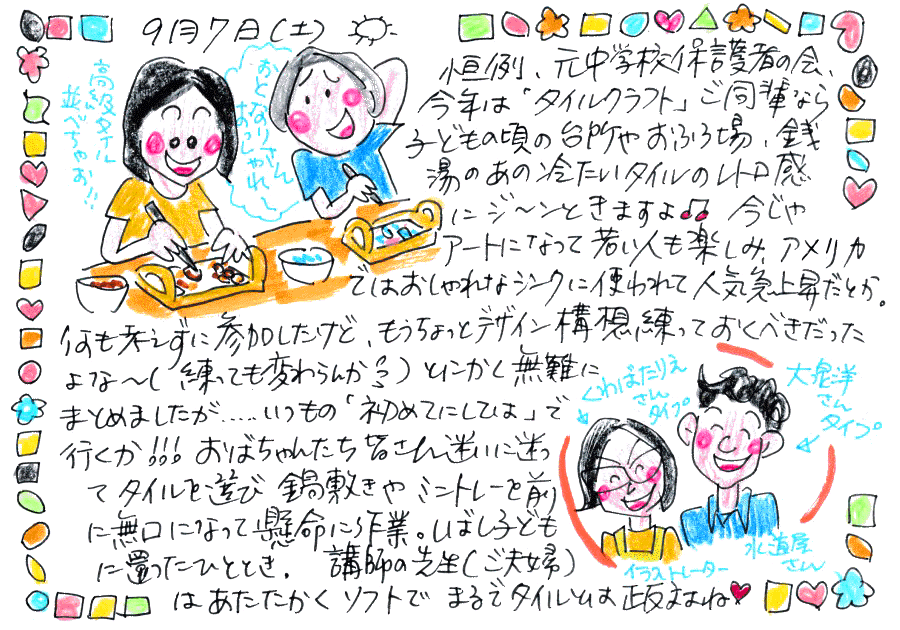 9月7日(土)
高級タイル
並べちゃお!!
おとなりさん
おっしゃれ
恒例、元中学校保護者の会、
今年は「タイルクラフト」ご同輩なら
子どもの頃の台所やおふろ場、銭
湯のあの冷たいタイルのレトロ感
にジ〜ンときますよ♫ 今じゃ
アートになって若い人も楽しみ、アメリカ
ではおしゃれなシンクに使われて人気急上昇だとか。
何も考えずに参加したけど、もうちょっとデザイン構想練っておくべきだった
よな〜(練っても変わらんか?)とにかく無難に
まとめましたが……いつもの「初めてにしては」で
行くか!!! おばちゃんたち皆さん迷いに迷っ
てタイルを選び鍋敷きやミニトレーを前
に無口になって懸命に作業。しばし子ども
に還ったひととき。 講師の先生(ご夫婦)
はあたたかくソフトで まるでタイルとは正反対ね♥
くわばたりえ
さん
タイプ
大泉洋
さん
タイプ
イラストレーター
水道屋
さん